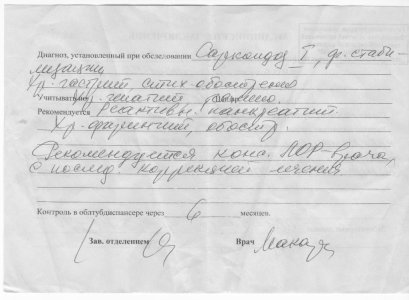 Диагноз, установленный при обследовании Саркоидоз I, ф. стаби-
лизации
Хр. гастрит, стих. обострение
Учитывая Хр. гепатит
Рекомендуется Реактивн. панкреатит.
Хр. фарингит, обостр.
Рекомендуется конс. ЛОР-врача,
с послед. коррекцией лечения
Контроль в облтубдиспансере через 6 месяцев.
Зав. отделением Врач